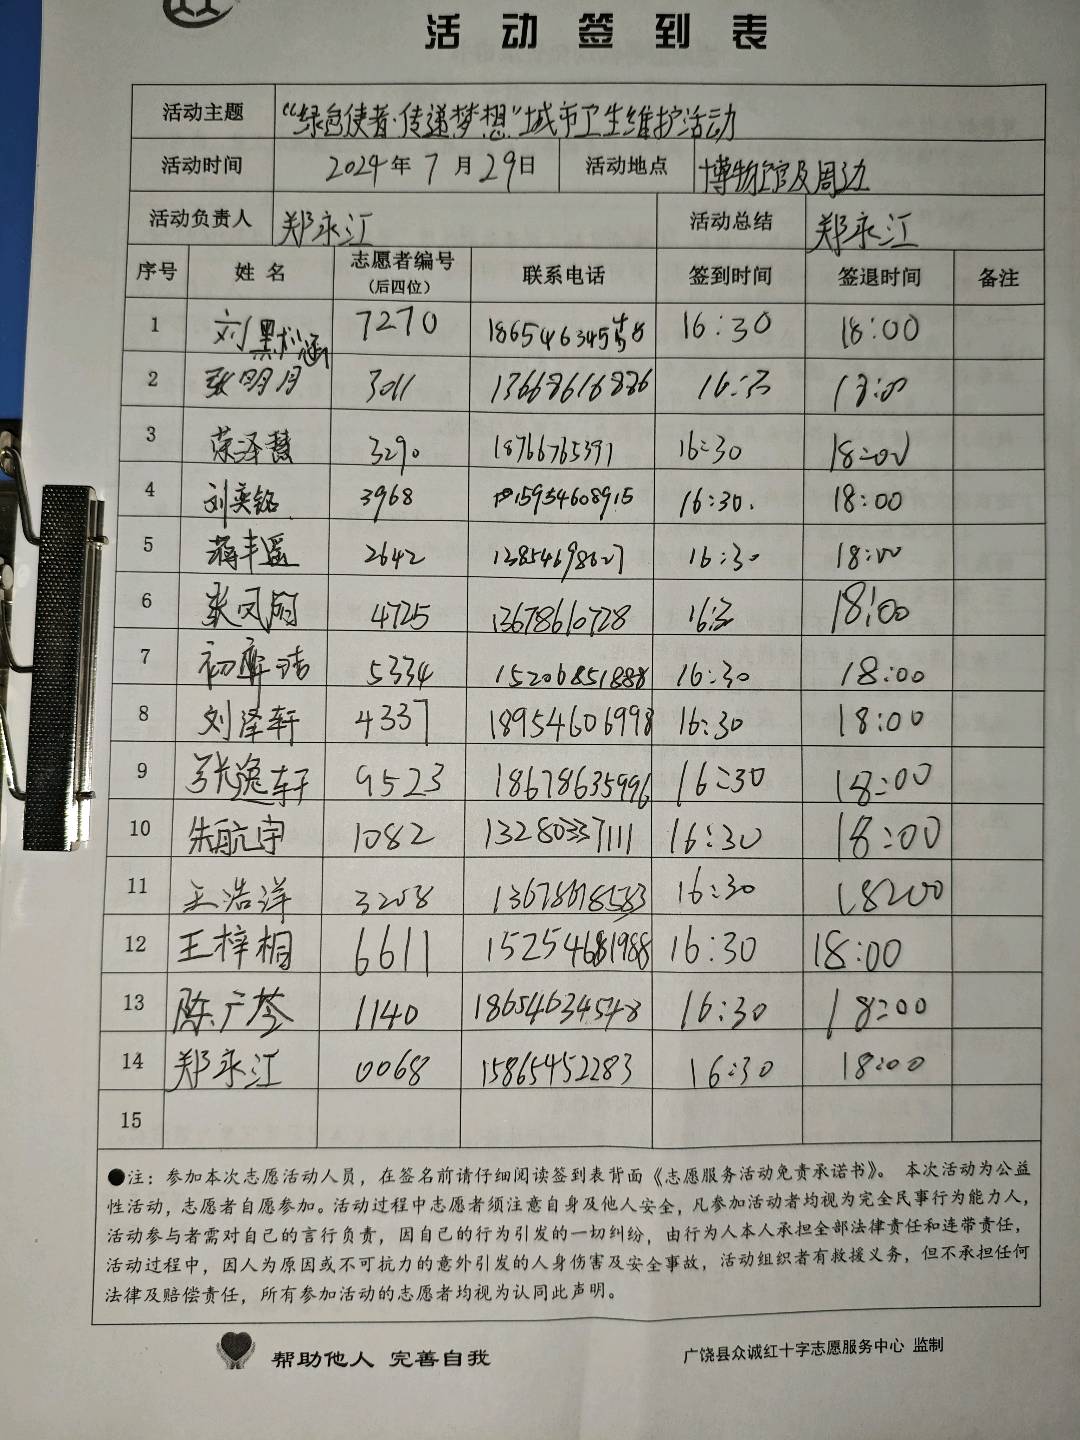 活动签到表
活动主题 “绿色使者·传递梦想”城市卫生维护活动
活动时间 2024年7月29日 活动地点 博物馆及周边
活动负责人 郑永江 活动总结 郑永江
序号 姓名 志愿者编号（后四位） 联系电话 签到时间 签退时间 备注
1 刘 7270 16:30 18:00
2 张明月 3011 13668616886 16:30 18:00
3 荣泽慧 3290 18766765391 16:30 18:00
4 刘奕铭 3968 15954608915 16:30. 18:00
5 蒋丰遥 2642 13854698627 16:30 18:00
6 张凤 4725 13678610728 16:30 18:00
7 初 5334 15206851888 16:30 18:00
8 刘泽轩 4337 18954606998 16:30 18:00
9 张逸轩 9523 18678635996 16:30 18:00
10 朱航宇 1082 13280337111 16:30 18:00
11 王浩洋 3208 16:30 18:00
12 王梓桐 6611 16:30 18:00
13 陈广苓 1140 18654634548 16:30 18:00
14 郑永江 0068 15865452283 16:30 18:00
15
●注：参加本次志愿活动人员，在签名前请仔细阅读签到表背面《志愿服务活动免责承诺书》。 本次活动为公益
性活动，志愿者自愿参加。活动过程中志愿者须注意自身及他人安全，凡参加活动者均视为完全民事行为能力人，
活动参与者需对自己的言行负责，因自己的行为引发的一切纠纷，由行为人本人承担全部法律责任和连带责任，
活动过程中，因人为原因或不可抗力的意外引发的人身伤害及安全事故，活动组织者有救援义务，但不承担任何
法律及赔偿责任，所有参加活动的志愿者均视为认同此声明。
帮助他人 完善自我 广饶县众诚红十字志愿服务中心 监制